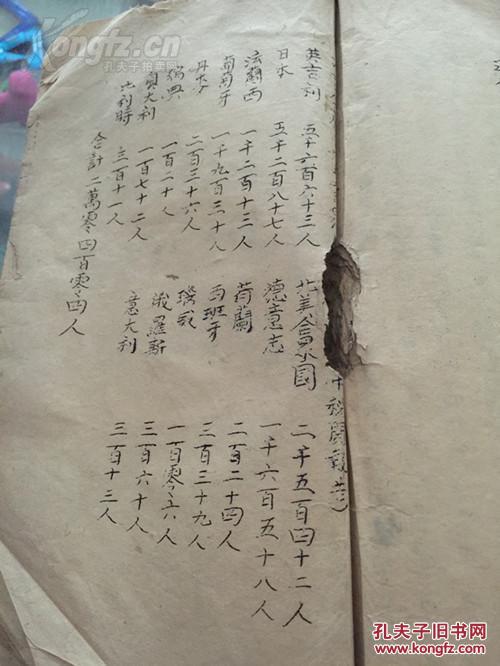 税關報告）
英吉利 五千六百六十三人 北美合衆國 二千五百四十二人
日本 五千二百八十七人 德意志 一千六百五十八人
法蘭西 一千二百十三人 荷蘭 二百二十四人
葡萄牙 一千九百三十八 西班牙 三百三十九人
二百三十六人 一百零六人
瑞典 一百二十人 俄羅斯 三百六十人
奧大利 一百七十二人 意大利 三百十三人
比利時 三百十一人
合計二萬零四百零四人
Kongfz.com
孔夫子旧书网
孔夫子旧书网
www.kongfz.com